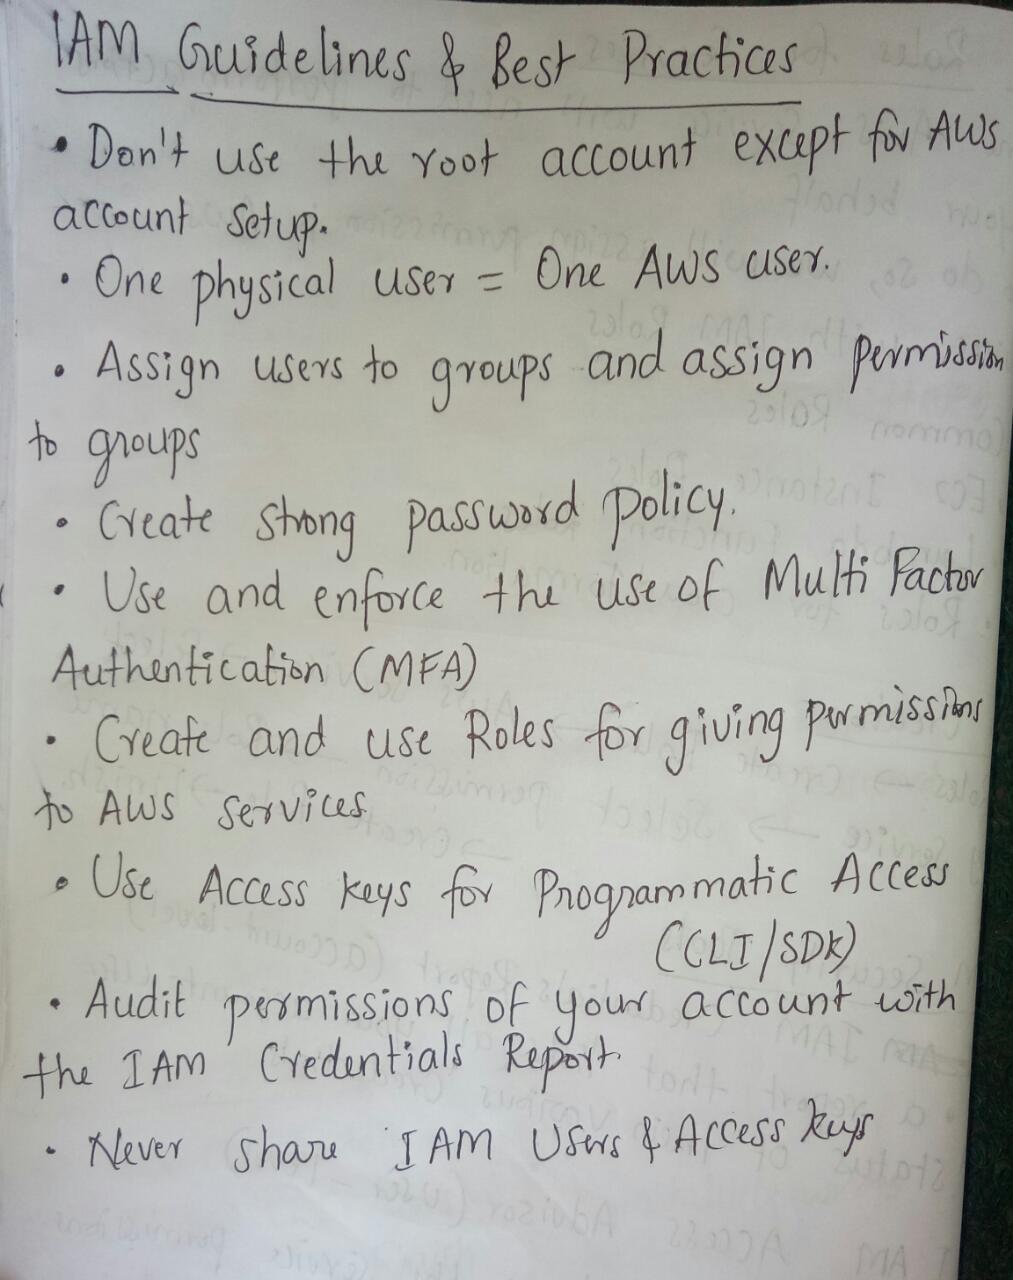 IAM Guidelines & Best Practices
• Don't use the root account except for AWS
account setup.
• One physical user = One AWS user.
• Assign users to groups and assign permission
to groups
• Create strong password policy.
• Use and enforce the use of Multi Factor
Authentication (MFA)
• Create and use Roles for giving permissions
to AWS services
• Use Access keys for Programmatic Access
(CLI/SDK)
• Audit permissions of your account with
the IAM Credentials Report.
• Never share IAM Users & Access keys